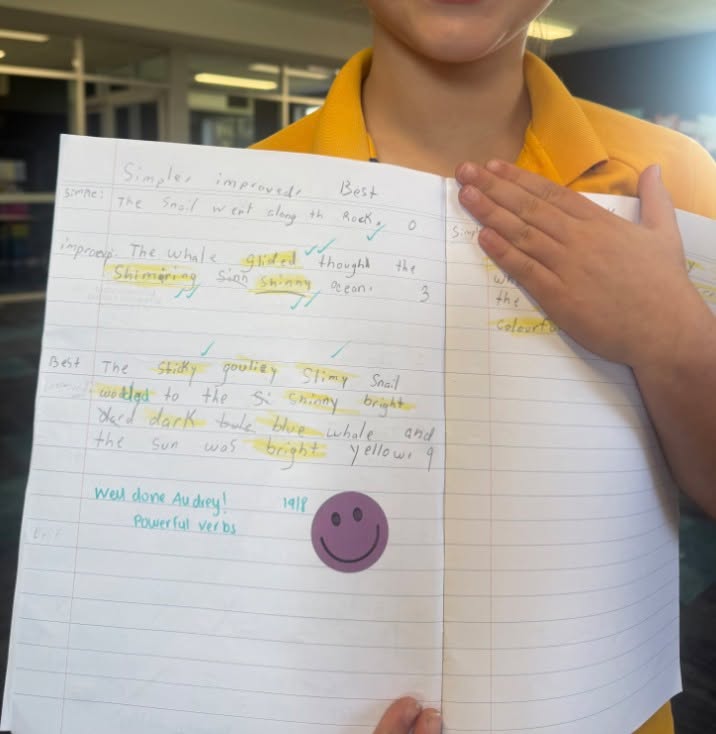 Simple, improved, Best
Simple: The Snail went along th Rock. 0
improved: The whale glided thought the
Shimaring shinny ocean. 3
Best The Sticky gouliey Slimy Snail
woddled to the Si shinny bright
dark blue whale and
the sun was bright yellow. 9
Well done Audrey! 19/8
Powerful verbs
Simpl
y
wh
the
colourfu